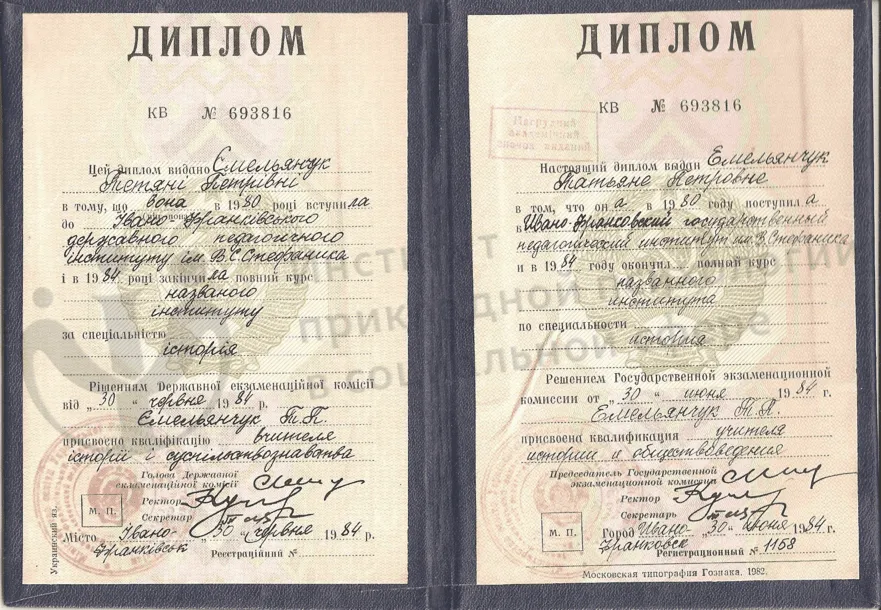 ДИПЛОМ
КВ № 693816
Цей диплом видано Ємельянчук
Тетяні Петрівні
в тому, що вона в 1980 році вступила
до Івано-Франківського
державного педагогічного
інституту ім. В.С. Стефаника
і в 1984 році закінчила повний курс
названого
інституту
за спеціальністю
історія
Рішенням Державної екзаменаційної комісії
від „30“ червня 1984 р.
Ємельянчук Т.П.
присвоєна кваліфікацію вчителя
історії і суспільствознавства
Голова Державної
екзаменаційної комісії
Ректор
Секретар
М. П.
Місто Івано-
Франківськ
„30“ червня 1984 р.
Реєстраційний №
Украинский яз.
ДИПЛОМ
КВ № 693816
Настоящий диплом выдан Емельянчук
Татьяне Петровне
в том, что она в 1980 году поступила
в Ивано-Франковский государственный
педагогический институт им. В. Стефаника
и в 1984 году окончил полный курс
названного
института
по специальности
история
Решением Государственной экзаменационной
комиссии от „30“ июня 1984 г.
Емельянчук Т.П.
присвоена квалификация учителя
истории и обществоведения
Председатель Государственной
экзаменационной комиссии
Ректор
Секретарь
М. П.
Город Ивано-
Франковск
„30“ июня 1984 г.
Регистрационный № 1158
Московская типография Гознака. 1982.
институт
прикладной психологии
в социальной сфере